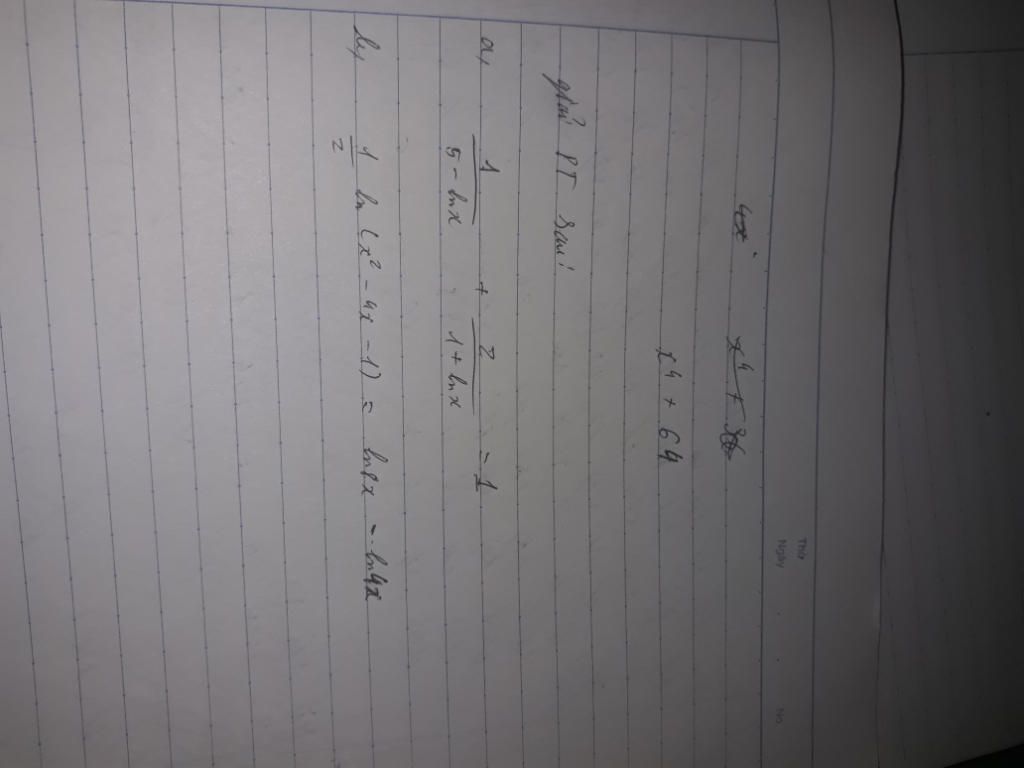 Thứ
Ngày . . No.
x⁴ + 36
x⁴ + 64
giải PT sau!
a, 1/(5 - lnx) + 2/(1 + lnx) = 1
b, 1/2 ln (x² - 4x - 1) = ln8x - ln4x